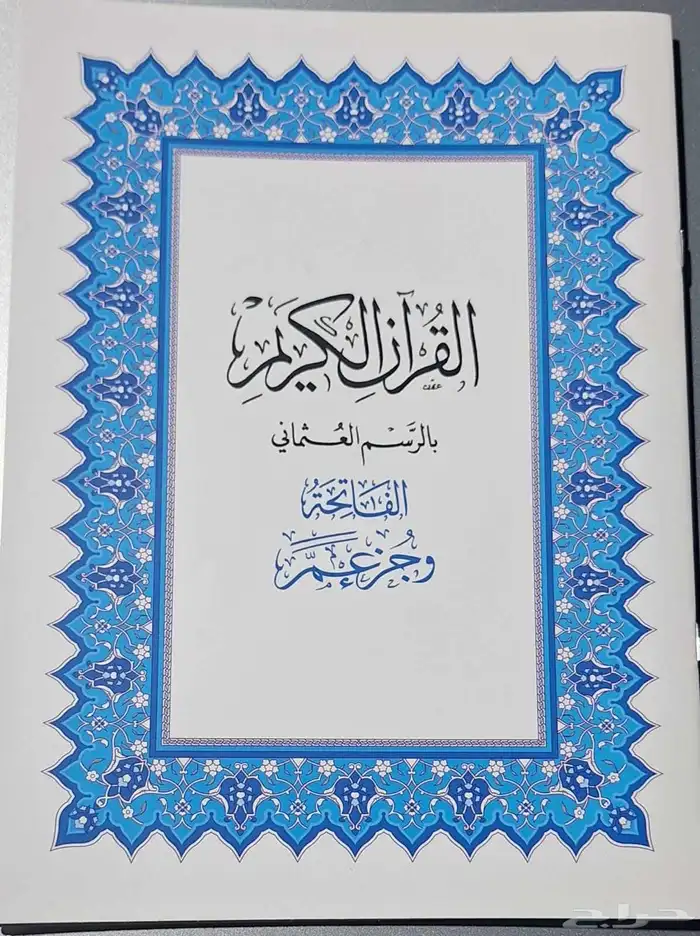 القُرآن الكَرِيْم
بالرَّسْم العُثماني
الفَاتِحَةُ
وَجُزءِ عَمَّ
حراج